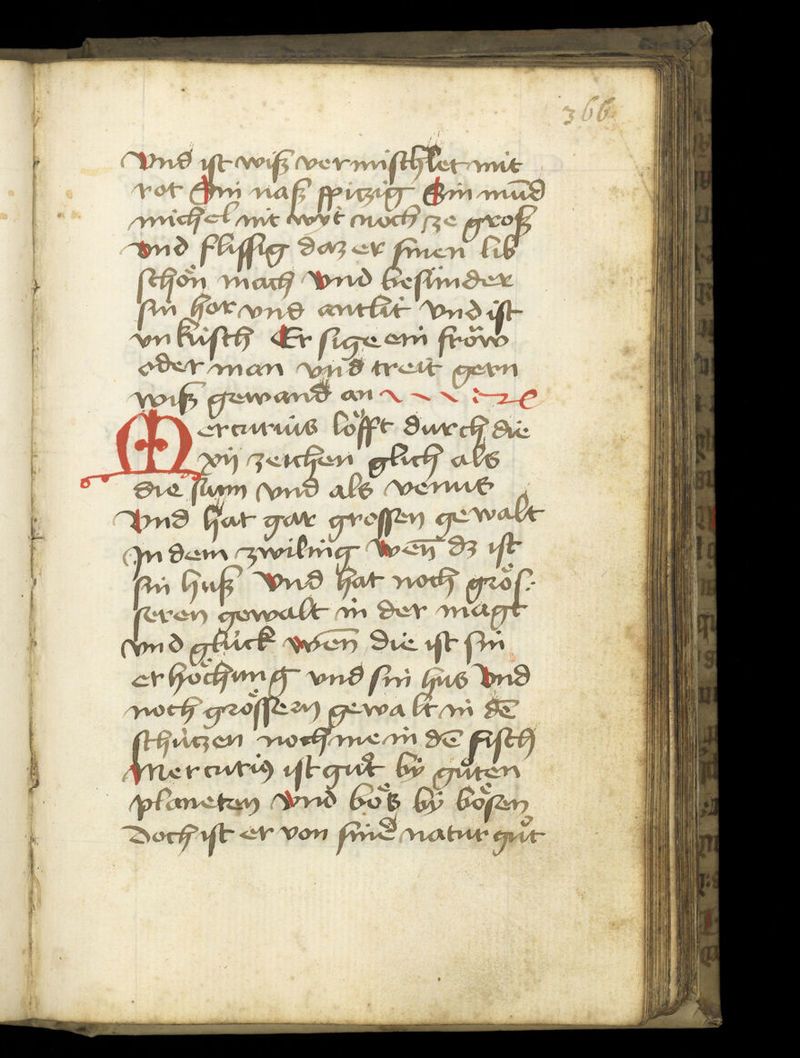 366
Vnd ist wiß vermischlet mit
rot Sin naß spitzig Sin mūd
michel nit wyt noch ze groß
vnd flissig daz er sinen lib
schön mach Vnd besunder
sin hor vnd antlit Vnd ist
vnküsch Er sige ein fröw
oder man vnd treit gern
wiß gewand an
Mercurius löfft durch die
xij zeichen glich als
die sunn vnd als venus
Vnd hat gar grossen gewalt
In dem zwiling wen̄ dz ist
sin huß Vnd hat noch grös:
seren gewalt in der magt
vnd glück wen̄ die ist sin
erhöchung vnd sin hus Vnd
noch grössern gewalt in dē
schützen noch me in dē fisch
Mercurius ist guͦt by guͦten
planeten Vnd bös by bösen
Doch ist er von siner natur guͦt